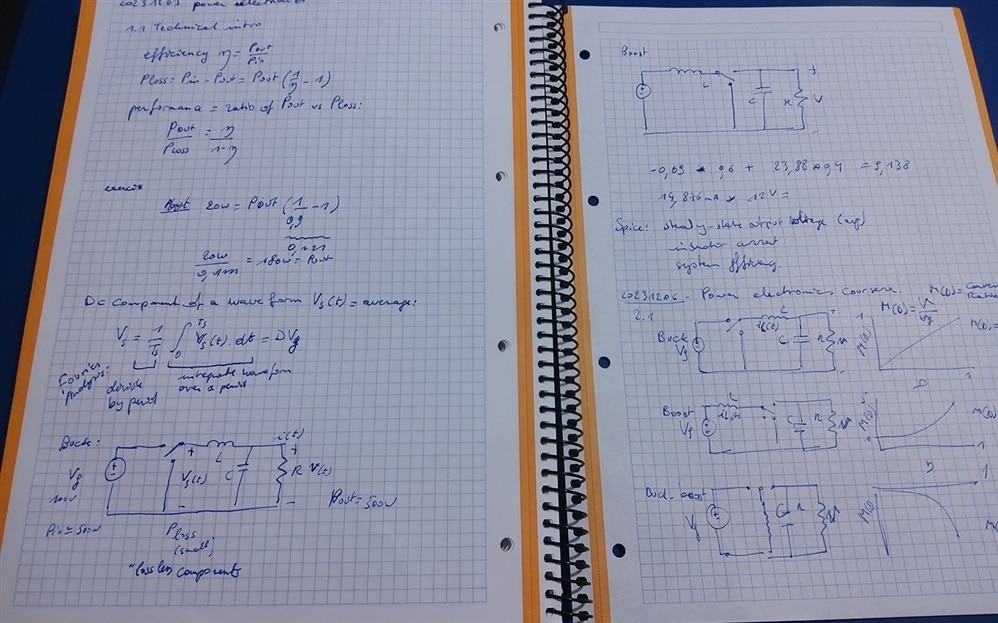 20231203 power electronics
1.1 Technical intro
efficiency η = Pout/Pin
Ploss = Pin - Pout = Pout (1/η - 1)
performana = ratio of Pout vs Ploss:
Pout/Ploss = η/1-η
exercise
Pout 20W = Pout (1/0,9 - 1)
20W/0,111 = 180W = Pout
DC component of a wave form Vs(t) = average:
Vs = 1/Ts ∫0 Ts Vs(t). dt = DVg
Fourier analysis:
divide by period
integrate waveform over a period
Buck:
i(t)
Vg
+
Vs(t)
-
L
C
R
+
V(t)
-
Pout = 500W
Pin ≈ 500W
Ploss
(small)
"lossless components
Boost
L
C
R
+
V
-
-0,69 * 0,6 + 23,88 * 0,4 = 9,138
14,876mA * 12V =
Spice: steady-state output voltage (avg)
inductor current
system efficiency.
20231206 - Power electronics coursera.
2.1
M(D) = V/Vg
M(D) =
Buck
Vg
L
iL(t)
C
R
+
-
M(D)
1
D
1
M(D) =
Boost
Vg
L
iL(t)
C
R
M(D)
1
D
1
M(D)
Buck-boost
Vg
C
R
M(D)
1
M(